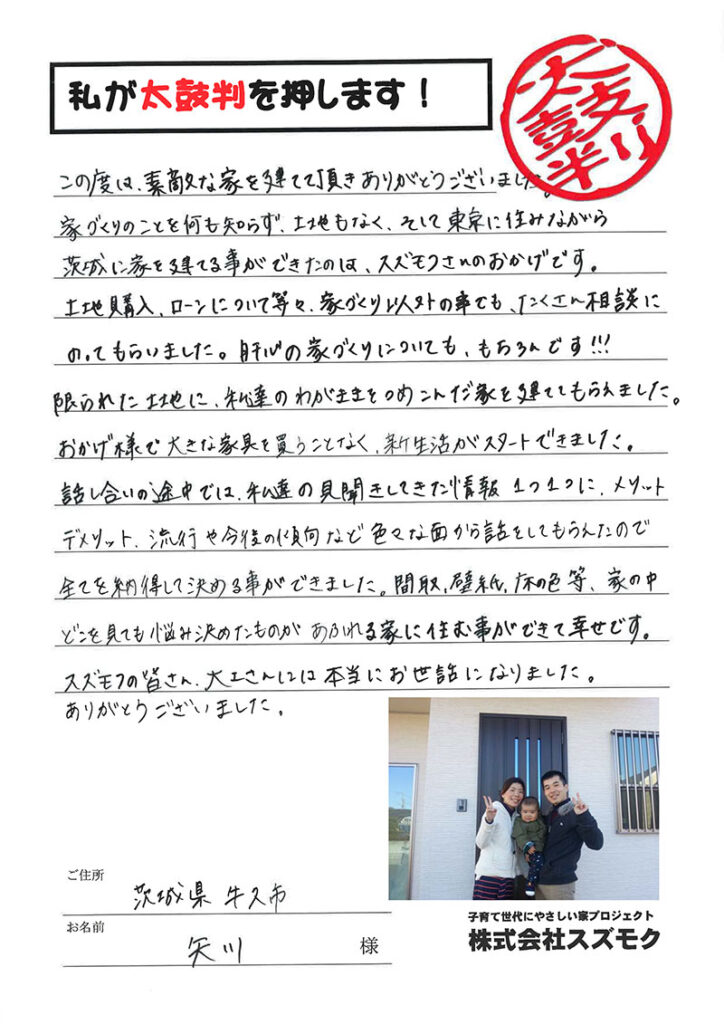 私が太鼓判を押します！
太鼓判
この度は、素敵な家を建てて頂きありがとうございました。
家づくりのことを何も知らず、土地もなく、そして東京に住みながら
茨城に家を建てる事ができたのは、スズモクさんのおかげです。
土地購入、ローンについて等々、家づくり以外の事でも、たくさん相談に
のってもらいました。肝心の家づくりについても、もちろんです!!!
限られた土地に、私達のわがままをつめこんだ家を建ててもらえました。
おかげ様で大きな家具を買うことなく、新生活がスタートできました。
話し合いの途中では、私達の見聞きしてきた情報1つ1つに、メリット
デメリット、流行や今後の傾向など色々な面から話をしてもらえたので
全てを納得して決める事ができました。間取、壁紙、床の色等、家の中
どこを見ても悩み決めたものがあふれる家に住む事ができて幸せです。
スズモクの皆さん、大工さんには本当にお世話になりました。
ありがとうございました。
ご住所
茨城県 牛久市
お名前
矢川 様
子育て世代にやさしい家プロジェクト
株式会社スズモク